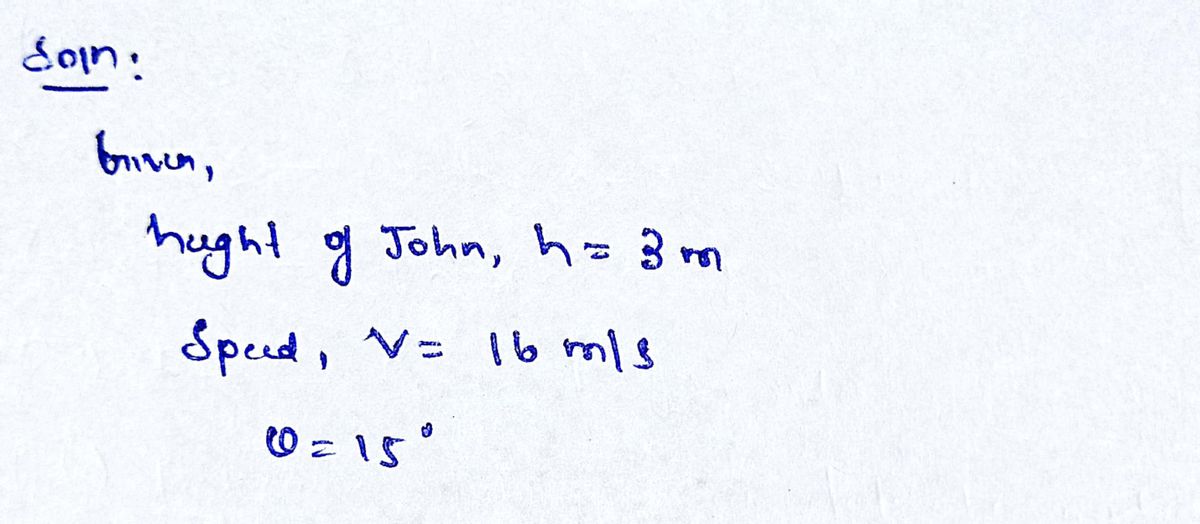 Soln:
Given,
height of John, h = 3 m
Speed, V = 16 m/s
θ = 15°